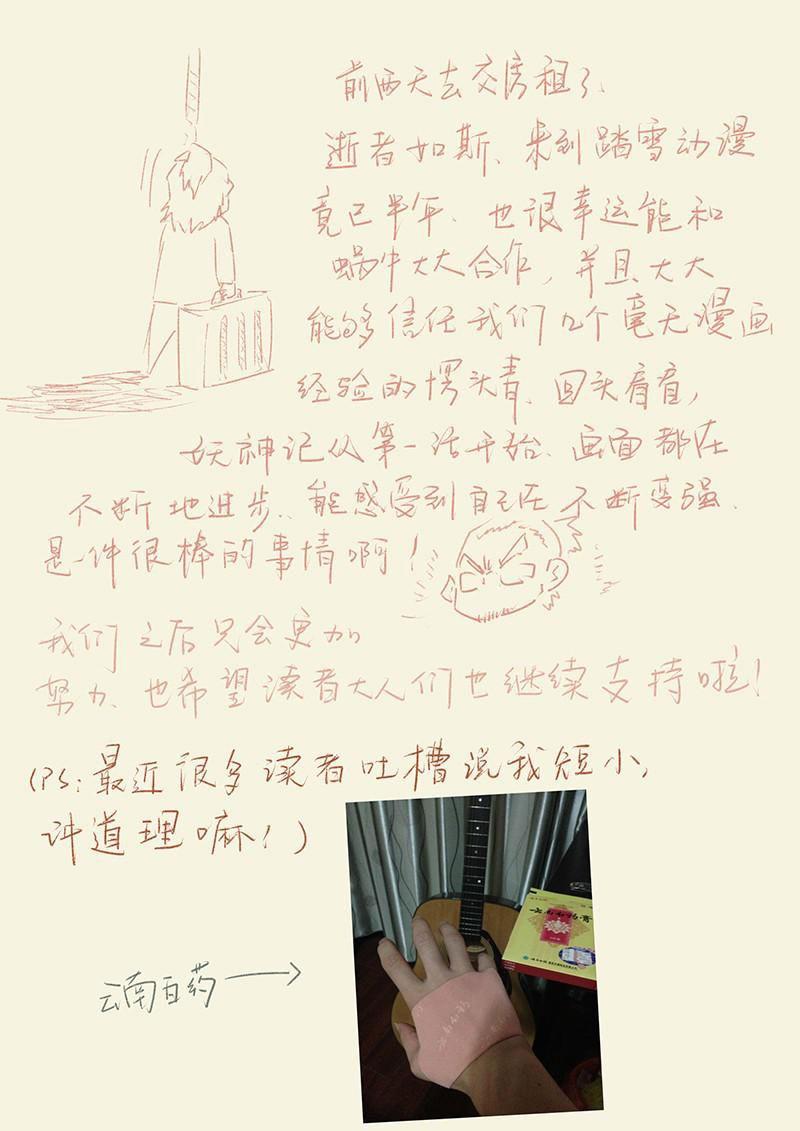 前两天去交房租了、
逝者如斯、来到踏雪动漫
竟已半年、也很幸运能和
蜗牛大大合作，并且大大
能够信任我们几个毫无漫画
经验的愣头青、回头看看，
妖神记从第一话开始、画面都在
不断地进步、能感受到自己在不断变强、
是一件很棒的事情啊！
我们之后只会更加
努力、也希望读者大人们也继续支持啦！
(PS:最近很多读者吐槽说我短小，
讲道理嘛！)
云南白药
云南白药膏
云南白药